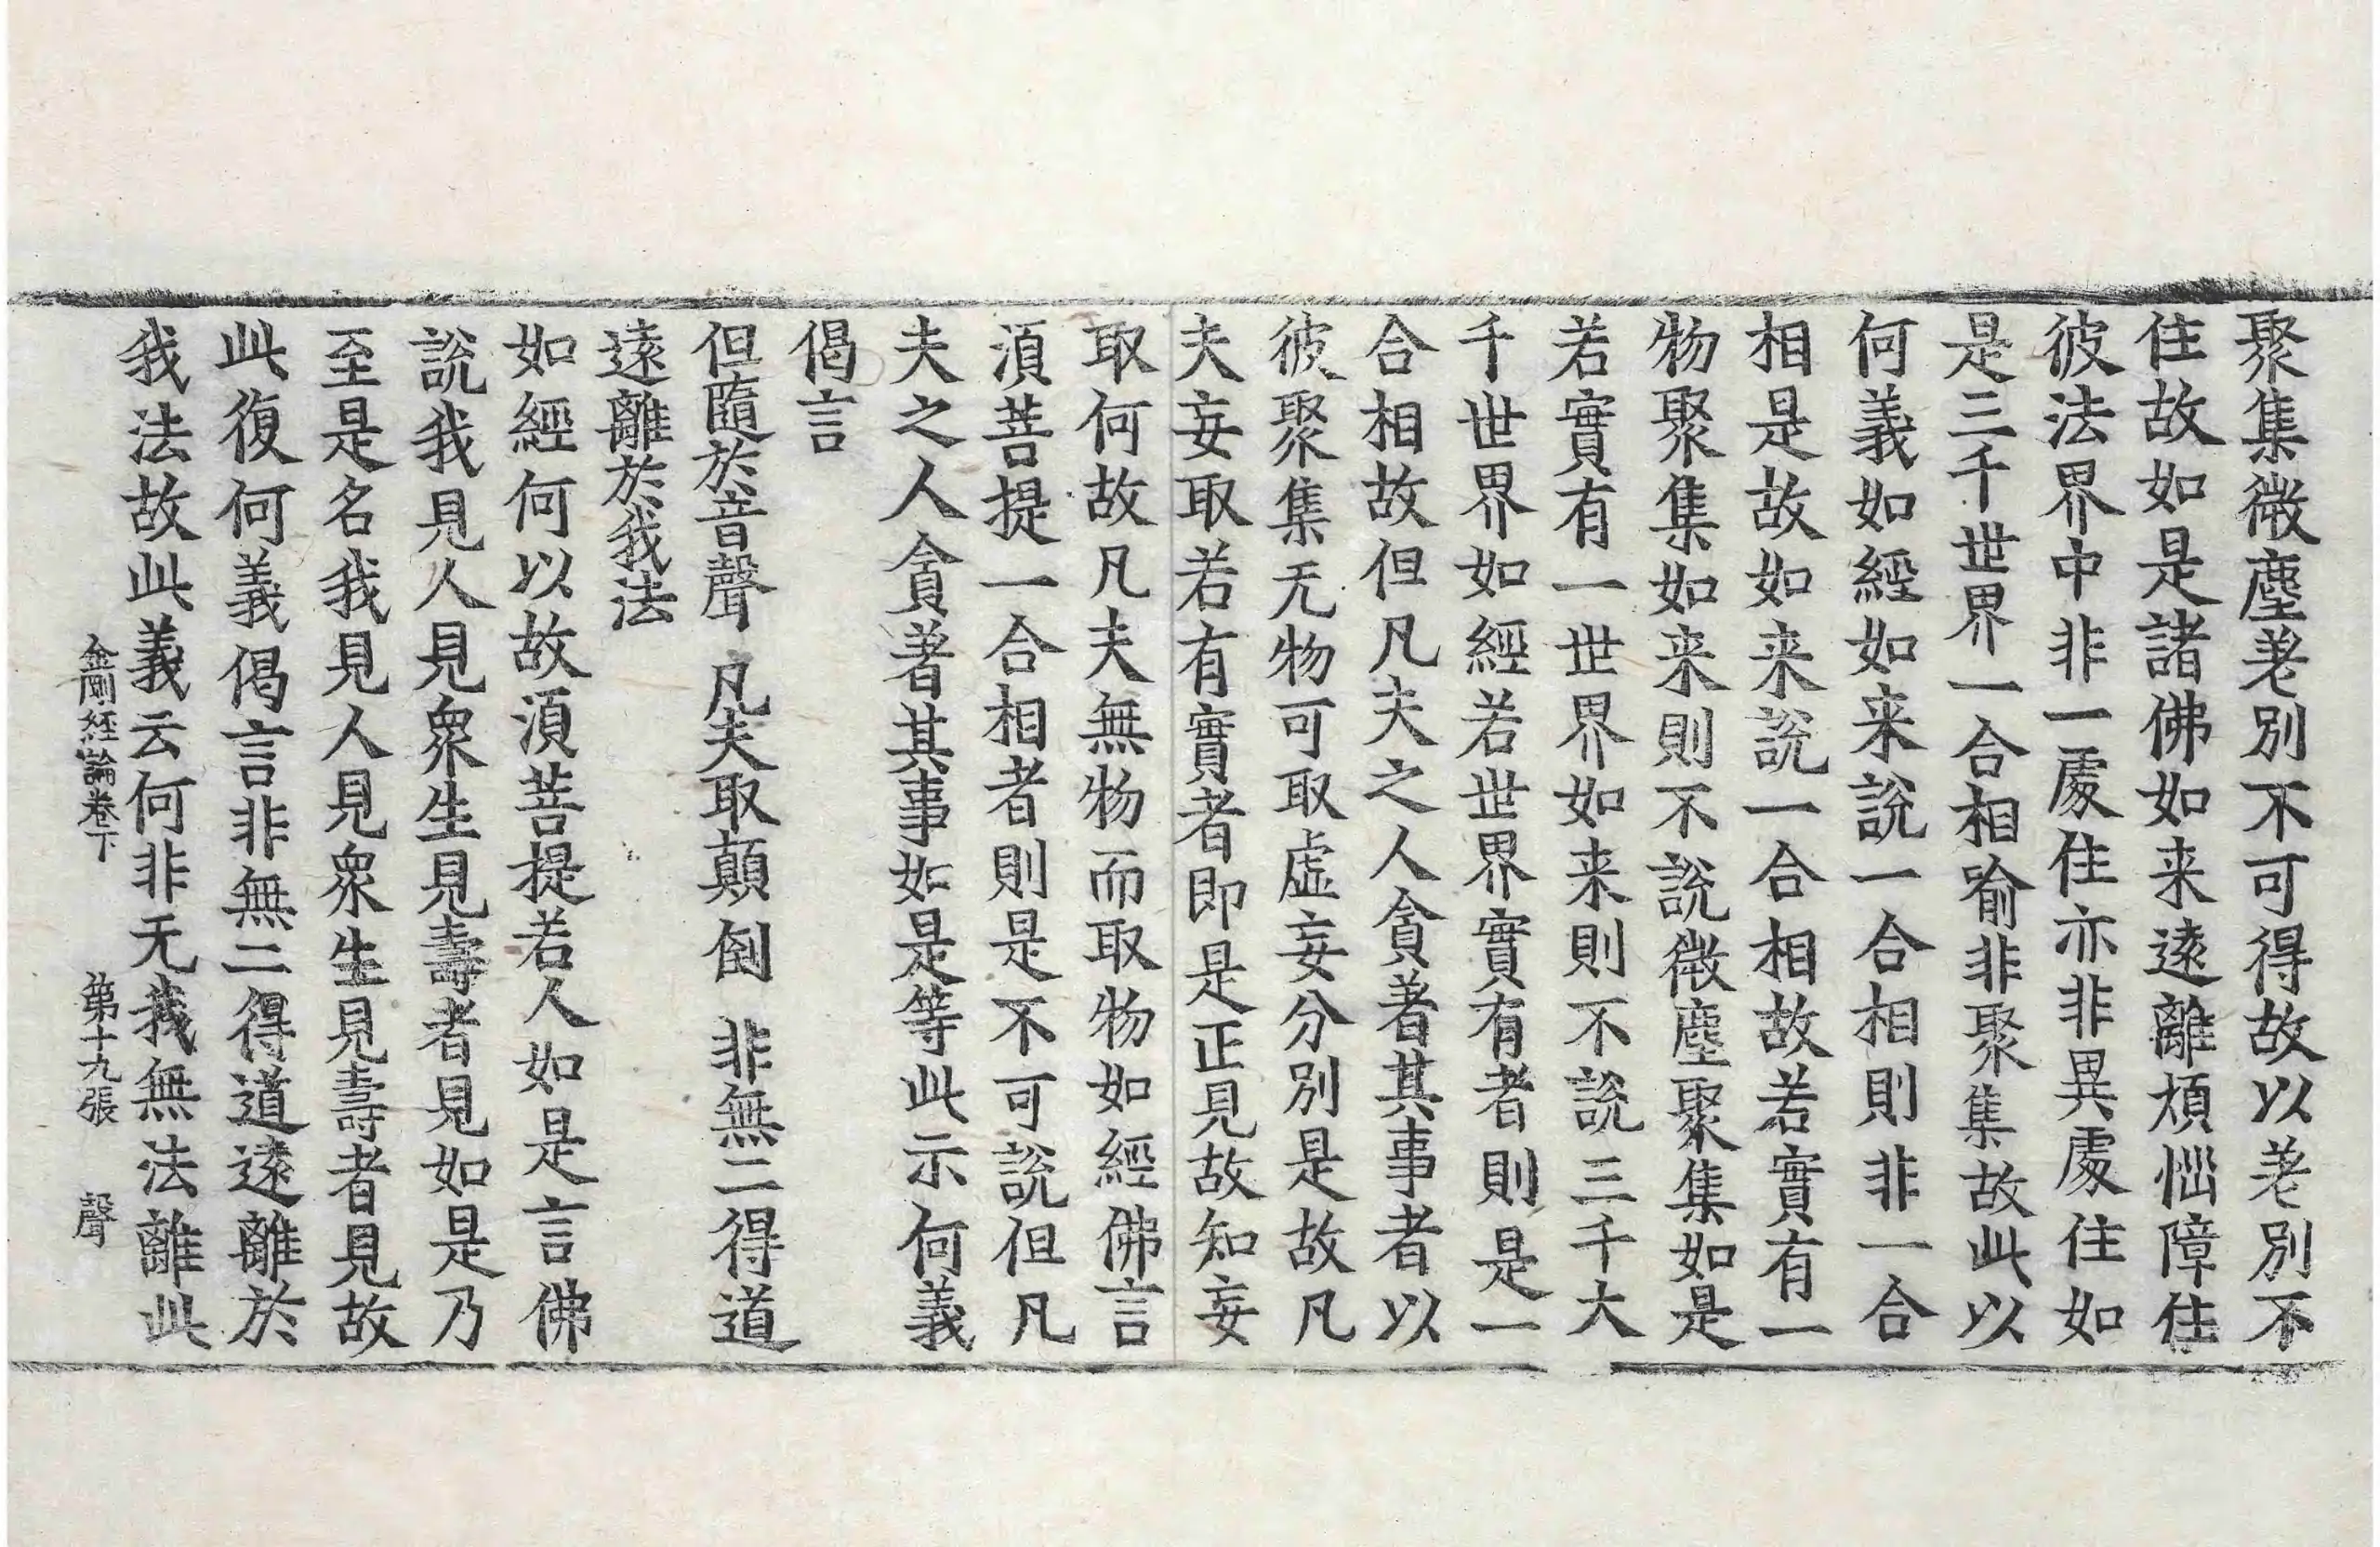 聚集微塵差別不可得故以差別不
住故如是諸佛如来遠離煩惱障住
彼法界中非一處住亦非異處住如
是三千世界一合相喻非聚集故此以
何義如經如来說一合相則非一合
相是故如来說一合相故若實有一
物聚集如来則不說微塵聚集如是
若實有一世界如来則不說三千大
千世界如經若世界實有者則是一
合相故但凡夫之人貪著其事者以
彼聚集无物可取虛妄分別是故凡
夫妄取若有實者即是正見故知妄
取何故凡夫無物而取物如經佛言
湏菩提一合相者則是不可說但凡
夫之人貪著其事如是等此示何義
偈言
但隨於音聲 凡夫取顛倒 非無二得道
遠離於我法
如經何以故湏菩提若人如是言佛
說我見人見眾生見壽者見如是乃
至是名我見人見眾生見壽者見故
此復何義偈言非無二得道遠離於
我法故此義云何非无我無法離此
金剛經論卷下 第十九張 聲